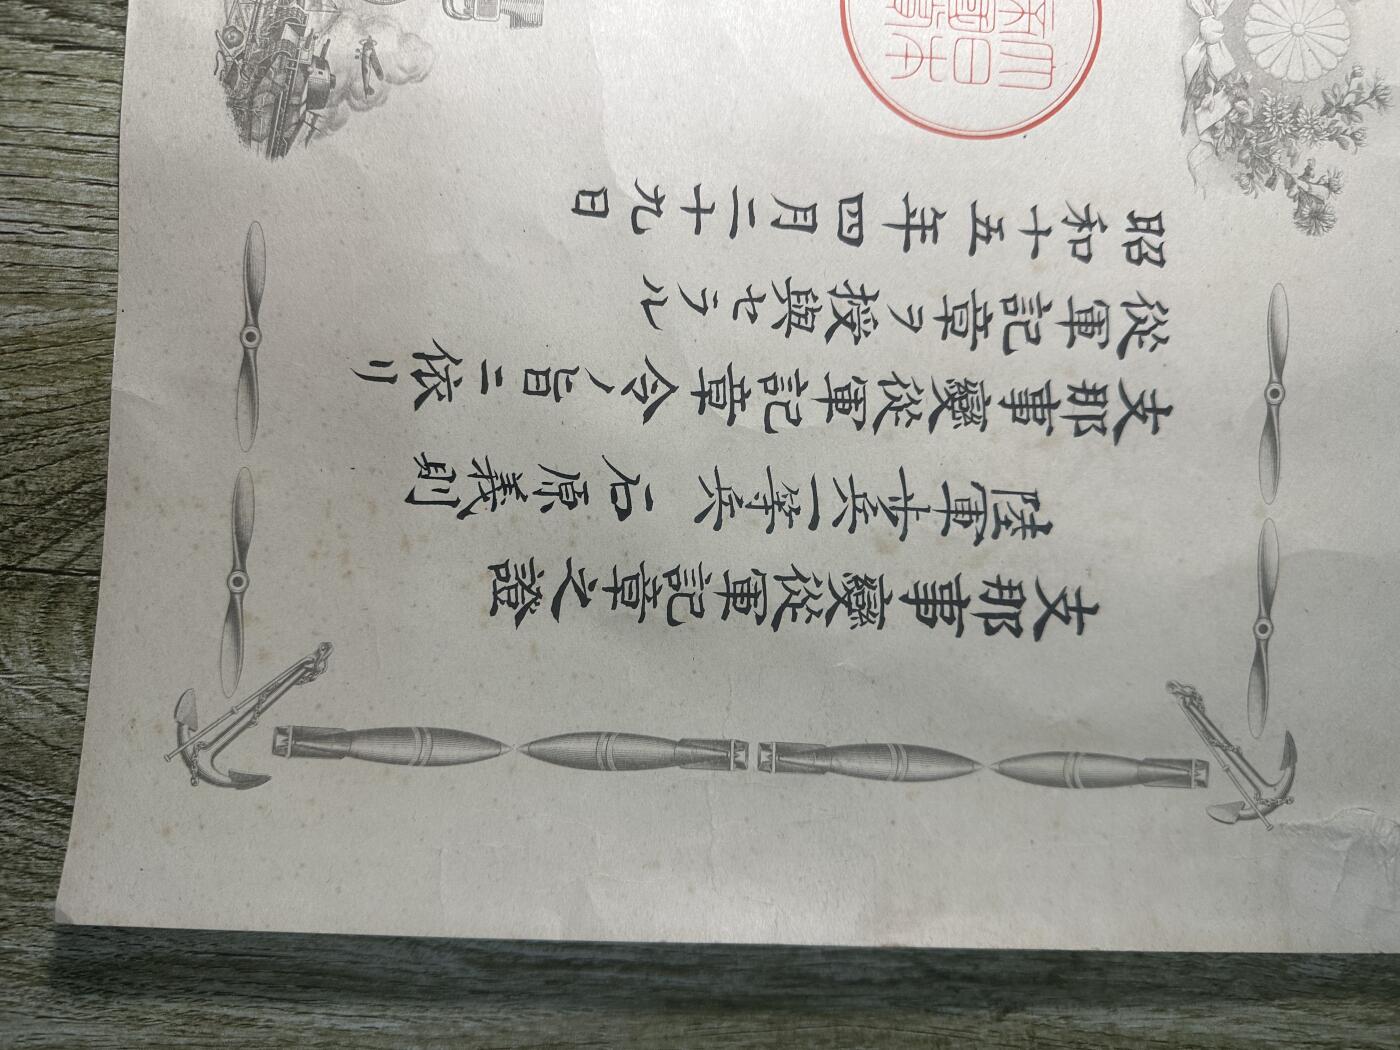 支那事變從軍記章之證
陸軍歩兵一等兵 石原義則
支那事變從軍記章令ノ旨ニ依リ
從軍記章ヲ授與セラル
昭和十五年四月二十九日